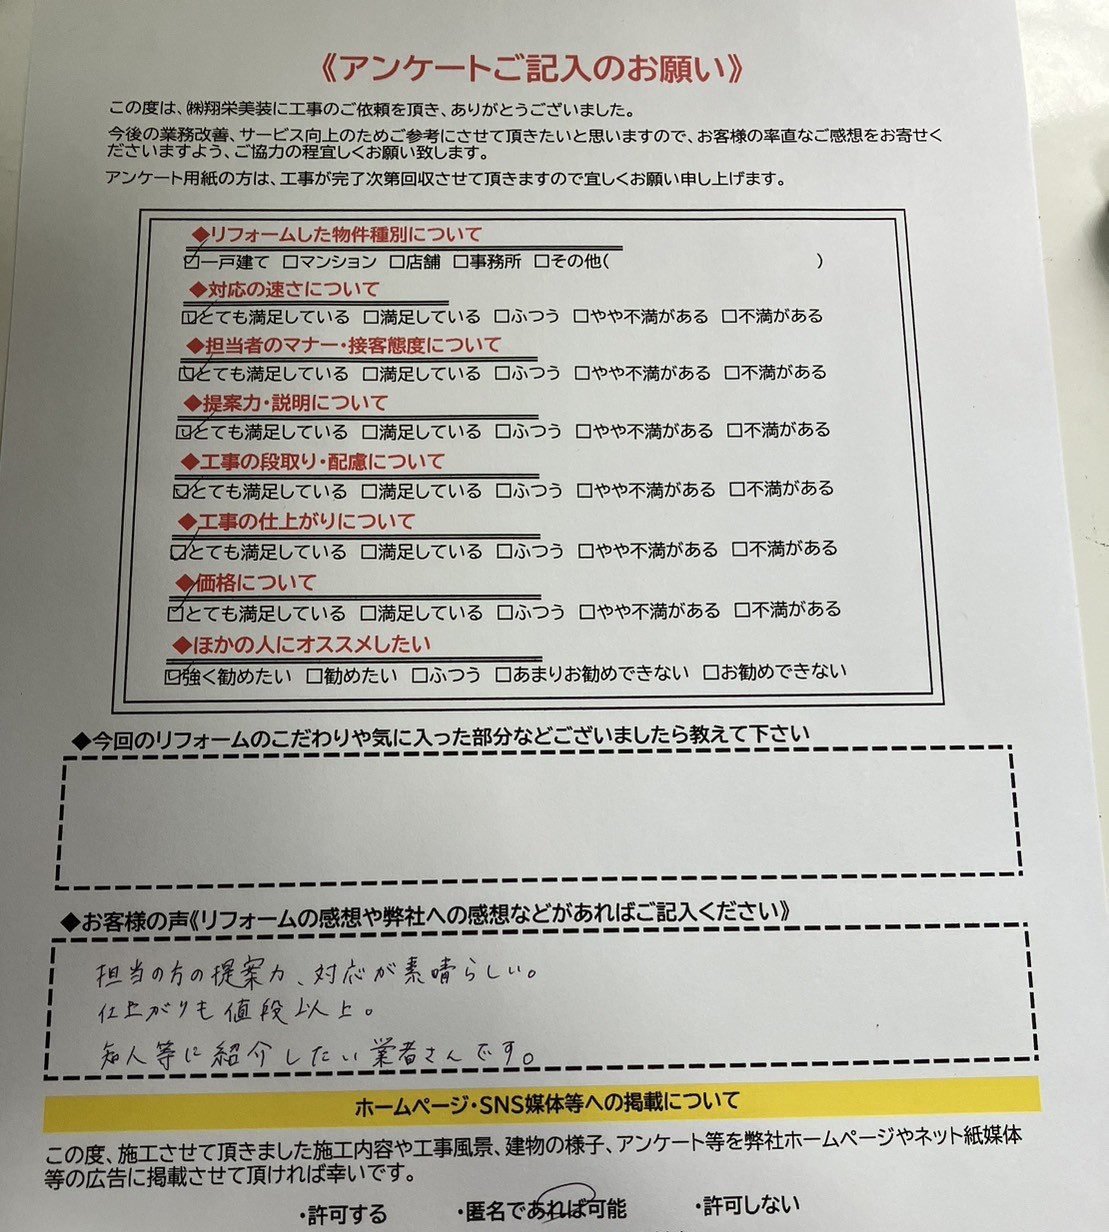 《アンケートご記入のお願い》
この度は、㈱翔栄美装に工事のご依頼を頂き、ありがとうございました。
今後の業務改善、サービス向上のためご参考にさせて頂きたいと思いますので、お客様の率直なご感想をお寄せく
ださいますよう、ご協力の程宜しくお願い致します。
アンケート用紙の方は、工事が完了次第回収させて頂きますので宜しくお願い申し上げます。
◆リフォームした物件種別について
☑一戸建て □マンション □店舗 □事務所 □その他( )
◆対応の速さについて
☑とても満足している □満足している □ふつう □やや不満がある □不満がある
◆担当者のマナー・接客態度について
☑とても満足している □満足している □ふつう □やや不満がある □不満がある
◆提案力・説明について
☑とても満足している □満足している □ふつう □やや不満がある □不満がある
◆工事の段取り・配慮について
☑とても満足している □満足している □ふつう □やや不満がある □不満がある
◆工事の仕上がりについて
☑とても満足している □満足している □ふつう □やや不満がある □不満がある
◆価格について
☑とても満足している □満足している □ふつう □やや不満がある □不満がある
◆ほかの人にオススメしたい
☑強く勧めたい □勧めたい □ふつう □あまりお勧めできない □お勧めできない
◆今回のリフォームのこだわりや気に入った部分などございましたら教えて下さい
◆お客様の声《リフォームの感想や弊社への感想などがあればご記入ください》
担当の方の提案力、対応が素晴らしい。
仕上がりも値段以上。
知人等に紹介したい業者さんです。
ホームページ・SNS媒体等への掲載について
この度、施工させて頂きました施工内容や工事風景、建物の様子、アンケート等を弊社ホームページやネット紙媒体
等の広告に掲載させて頂ければ幸いです。
・許可する ・匿名であれば可能 ・許可しない